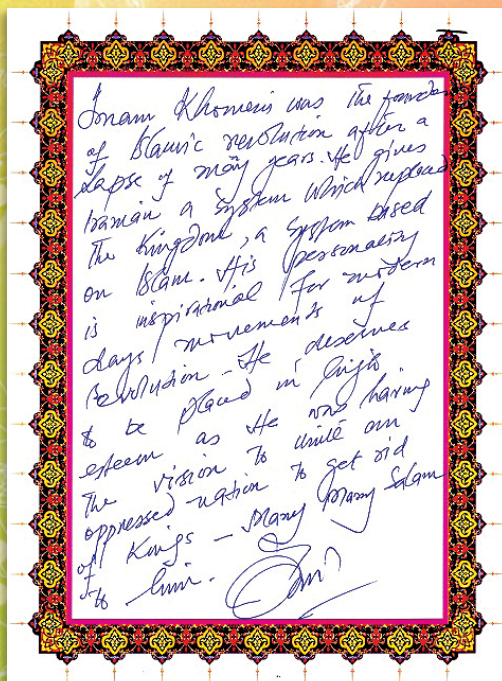 Imam Khomeini was the founder
of Islamic revolution after a
lapse of many years. He gives
Iranian a system which replaced
The Kingdom, a system based
on Islam. His personality
is inspirational for modern
days movements of
Revolution - He deserves
to be placed in high
esteem as He was having
The vision to unite an
oppressed nation to get rid
of Kings - Many Many Salam
to him.